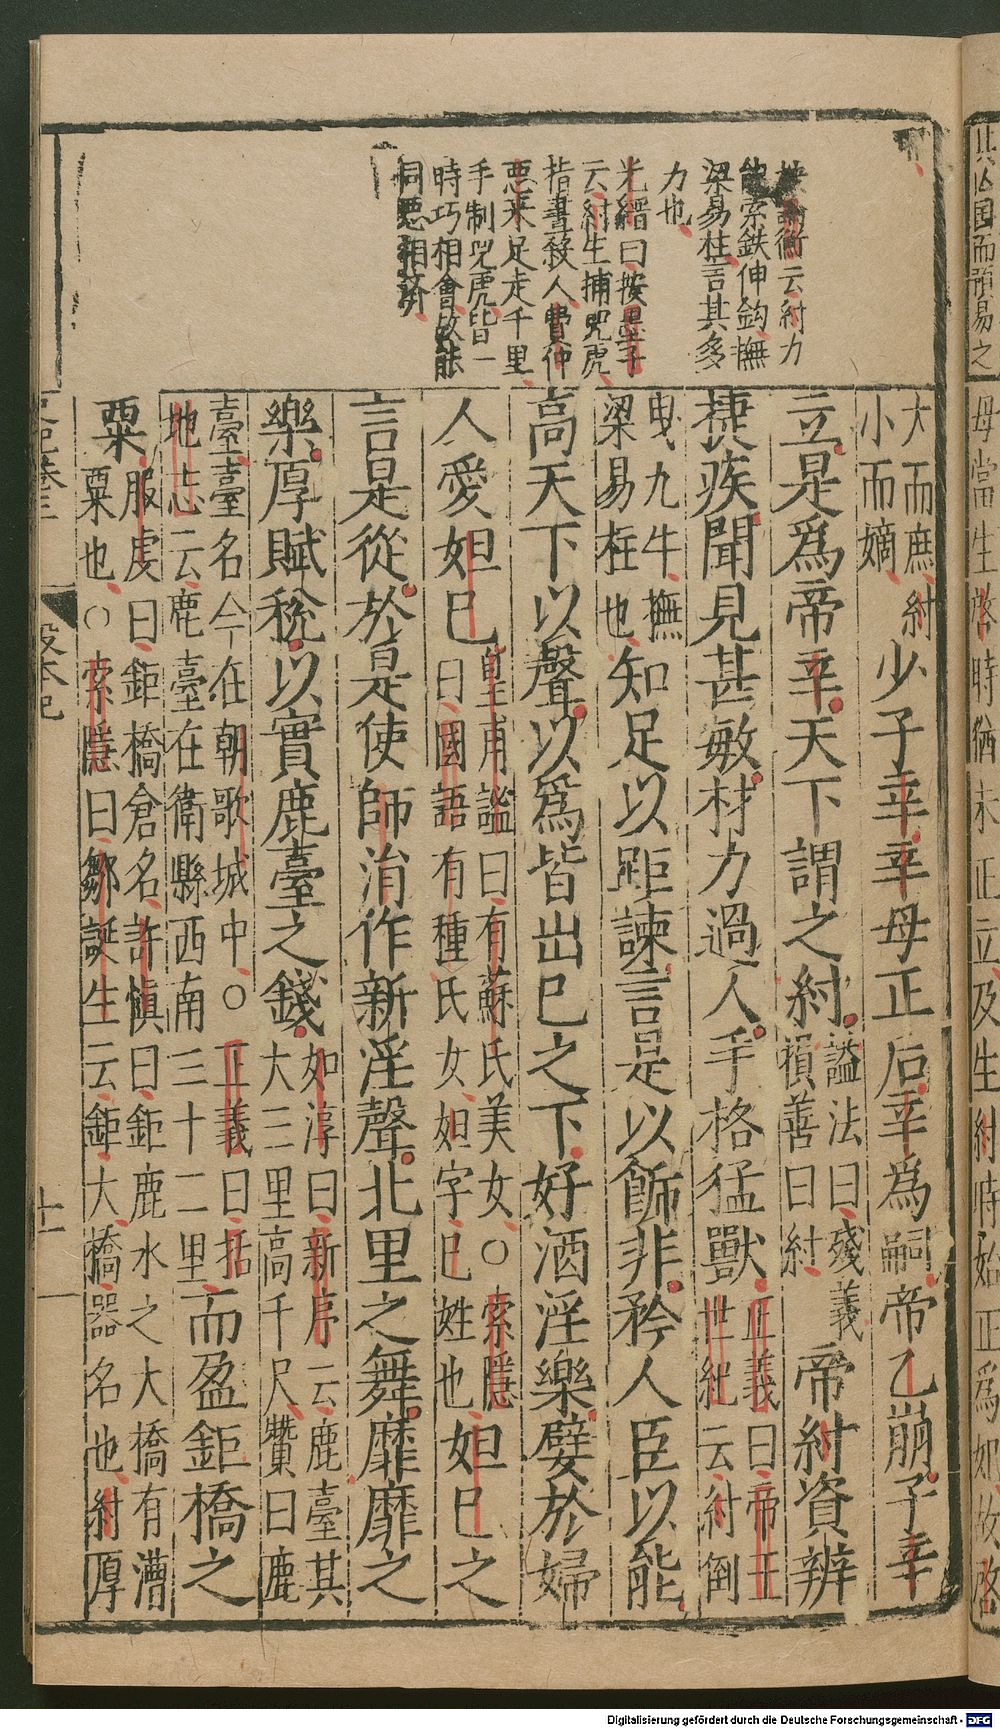 其山国而頑易之
母當生啓時猶未正立及生紂時始正爲妃故啓
按論衡云紂力
能索鉄伸鈎撫
梁易柱言其多
力也
光縉曰按墨子
云紂生捕兕虎
指畫殺人費仲
惡來足走千里
手制兕虎皆一
時巧相會故能
同惡相濟
大而庶紂
小而嫡
少子辛辛母正后辛爲嗣帝乙崩子辛
立是爲帝辛天下謂之紂
謚法曰殘義
損善曰紂
帝紂資辨
捷疾聞見甚敏材力過人手格猛獸
正義曰帝王
世紀云紂倒
曳九牛撫
梁易柱也
知足以距諫言是以飾非矜人臣以能
高天下以聲以爲皆出已之下好酒淫樂嬖於婦
人愛妲已
皇甫謐曰有蘇氏美女○索隱
曰國語有種氏女妲字已姓也
妲已之
言是從於是使師涓作新淫聲北里之舞靡靡之
樂厚賦稅以實鹿臺之錢
如淳曰新序云鹿臺其
大三里高千尺瓚曰鹿
臺臺名今在朝歌城中○正義曰括
地志云鹿臺在衛縣西南三十二里
而盈鉅橋之
粟
服虔曰鉅橋倉名許慎曰鉅鹿水之大橋有漕
粟也○索隱曰鄒誕生云鉅大橋器名也紂厚
史記卷三
殷本紀
十一
Digitalisierung gefördert durch die Deutsche Forschungsgemeinschaft - DFG